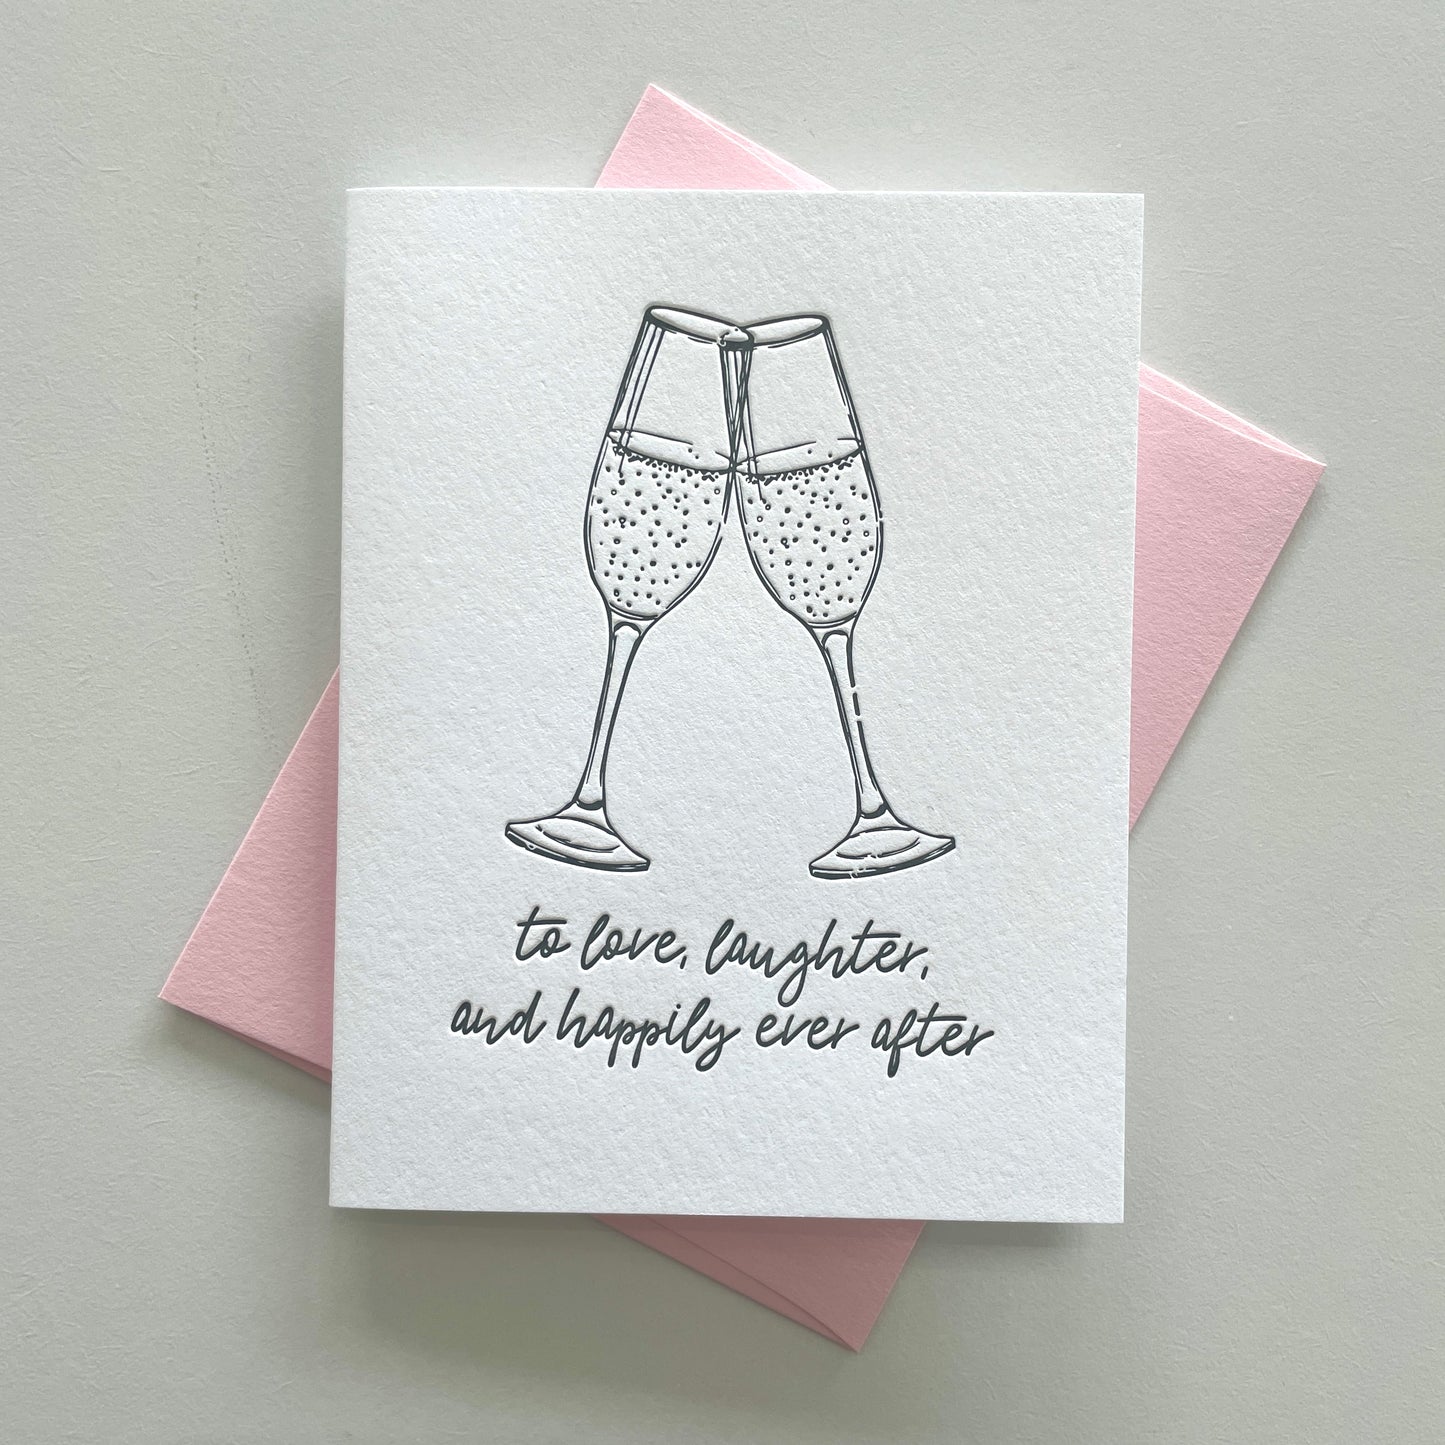 to love, laughter,
and happily ever after